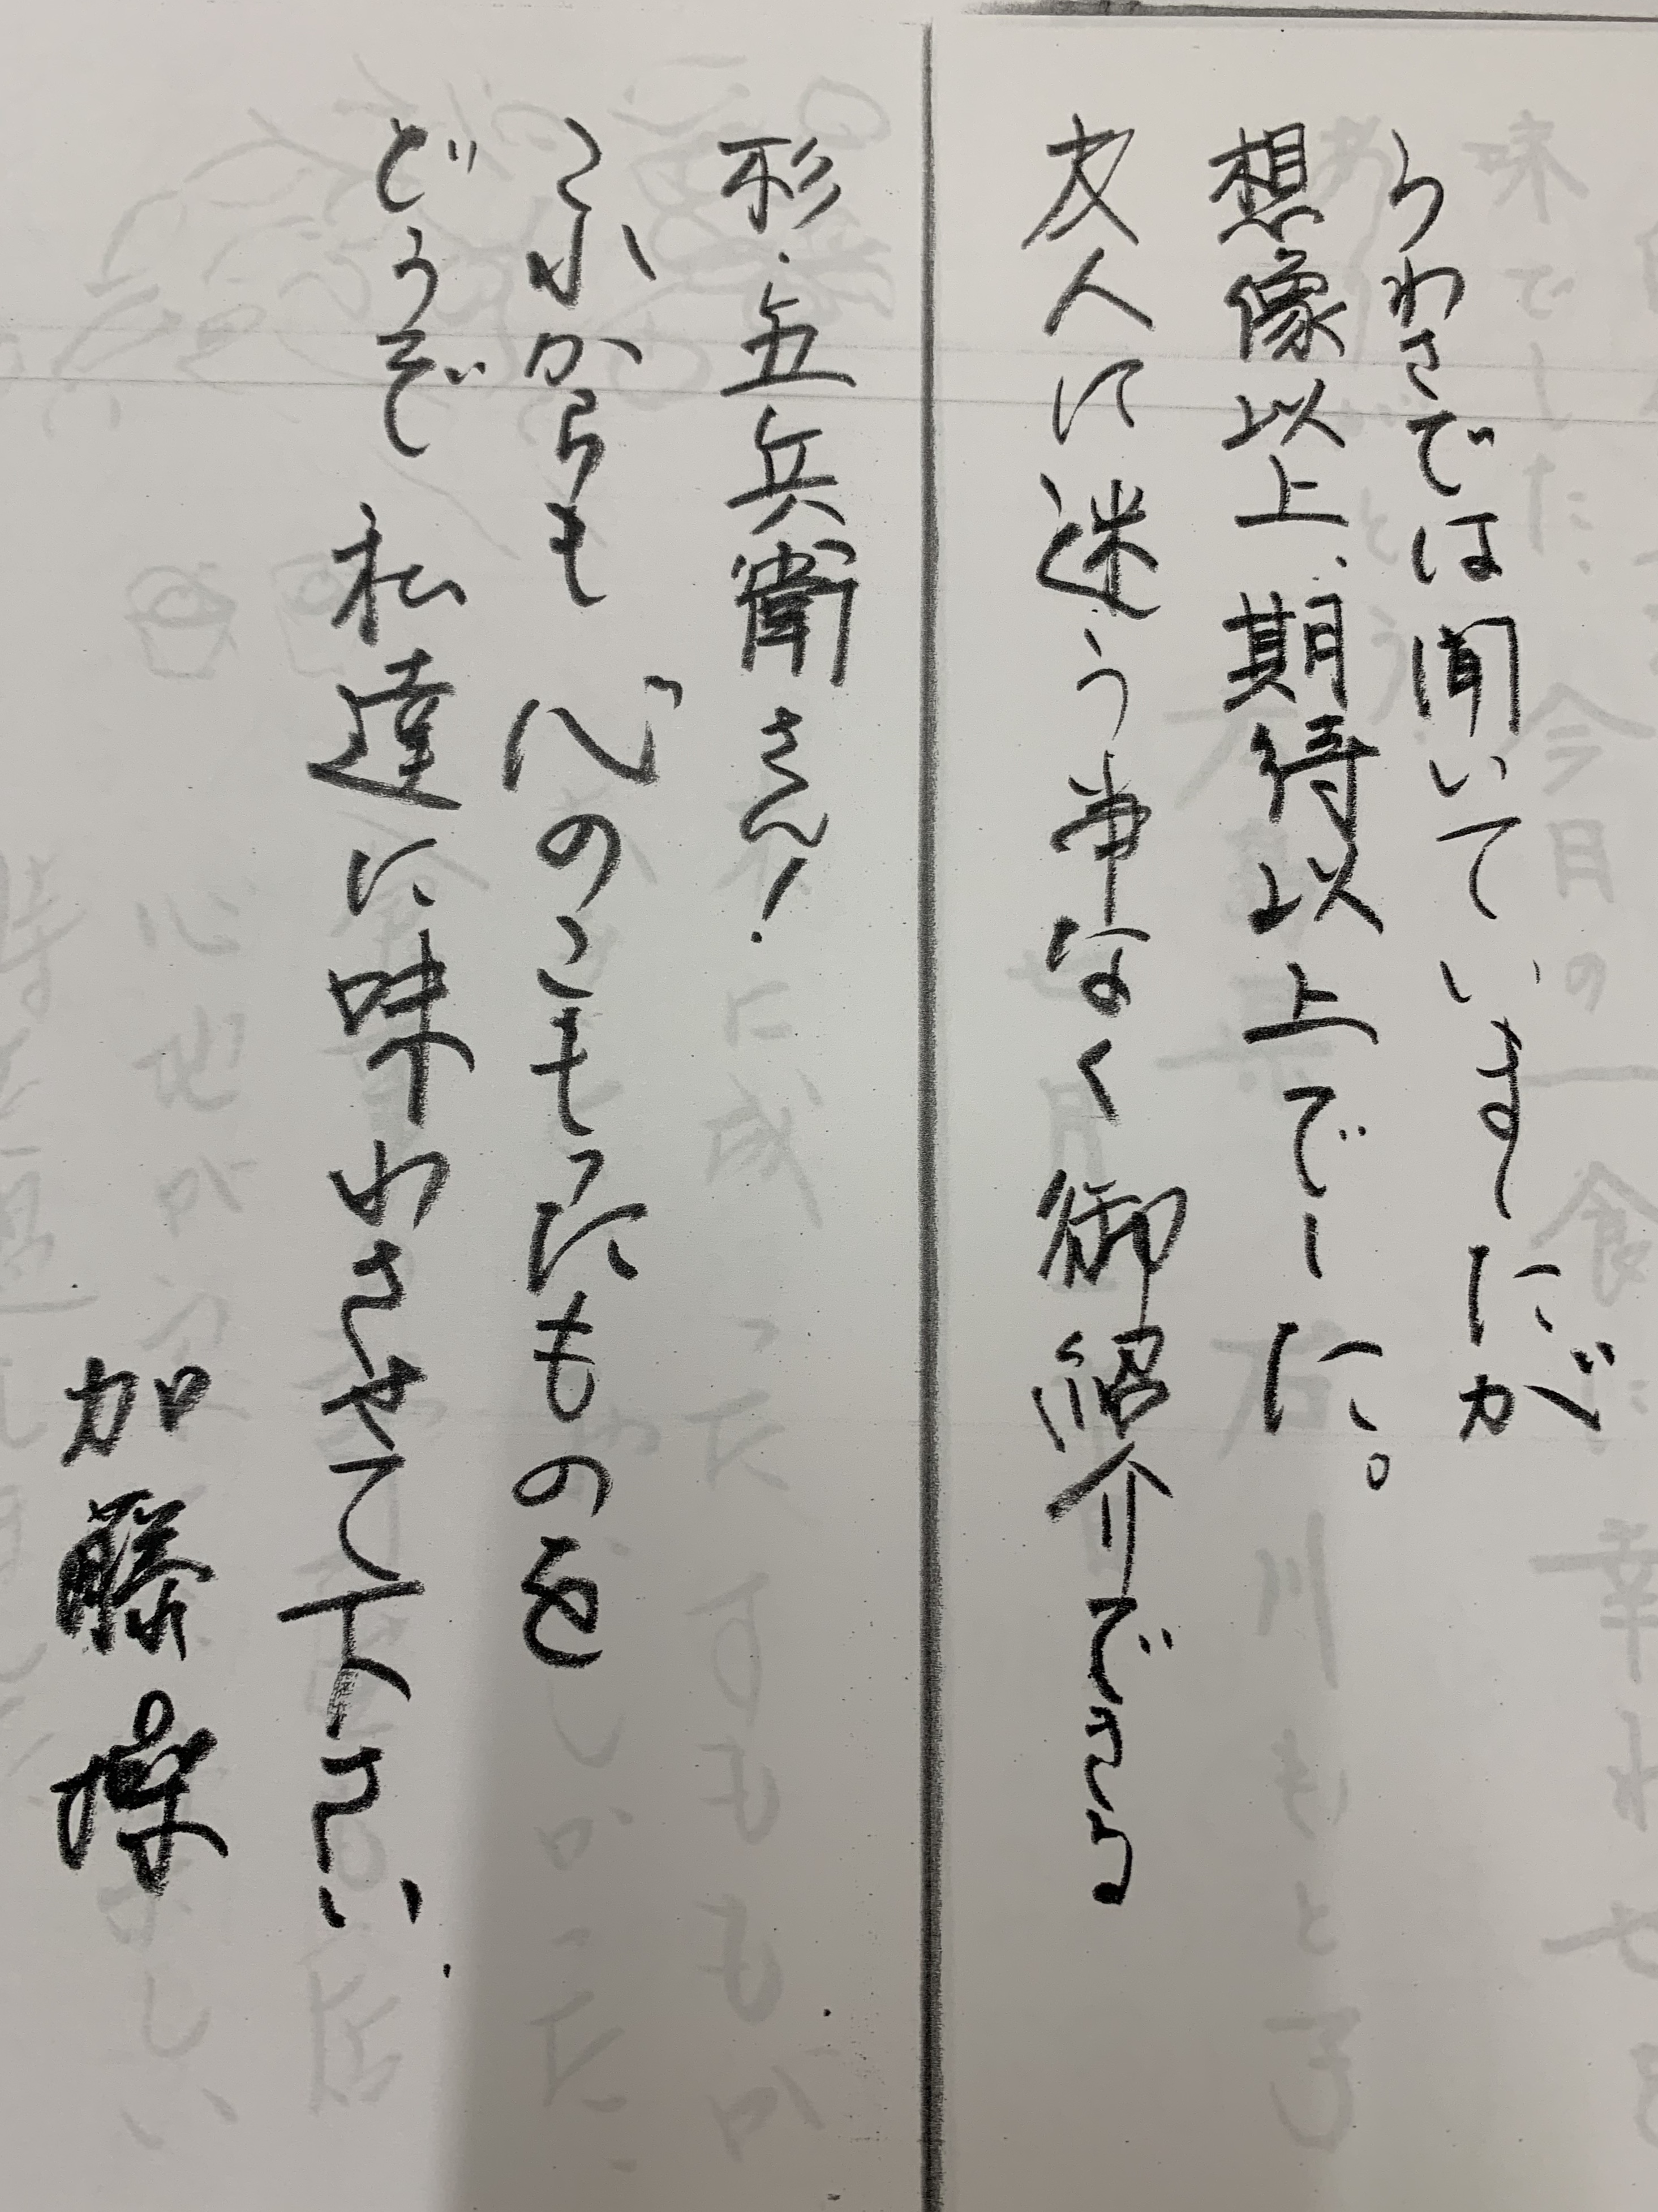 うわさでは聞いていましたが
想像以上、期待以上でした。
友人に迷う事なく御紹介できる
杉・五兵衛さん！
これからも心のこもったものを
どうぞ私達に味わさせて下さい
加藤操